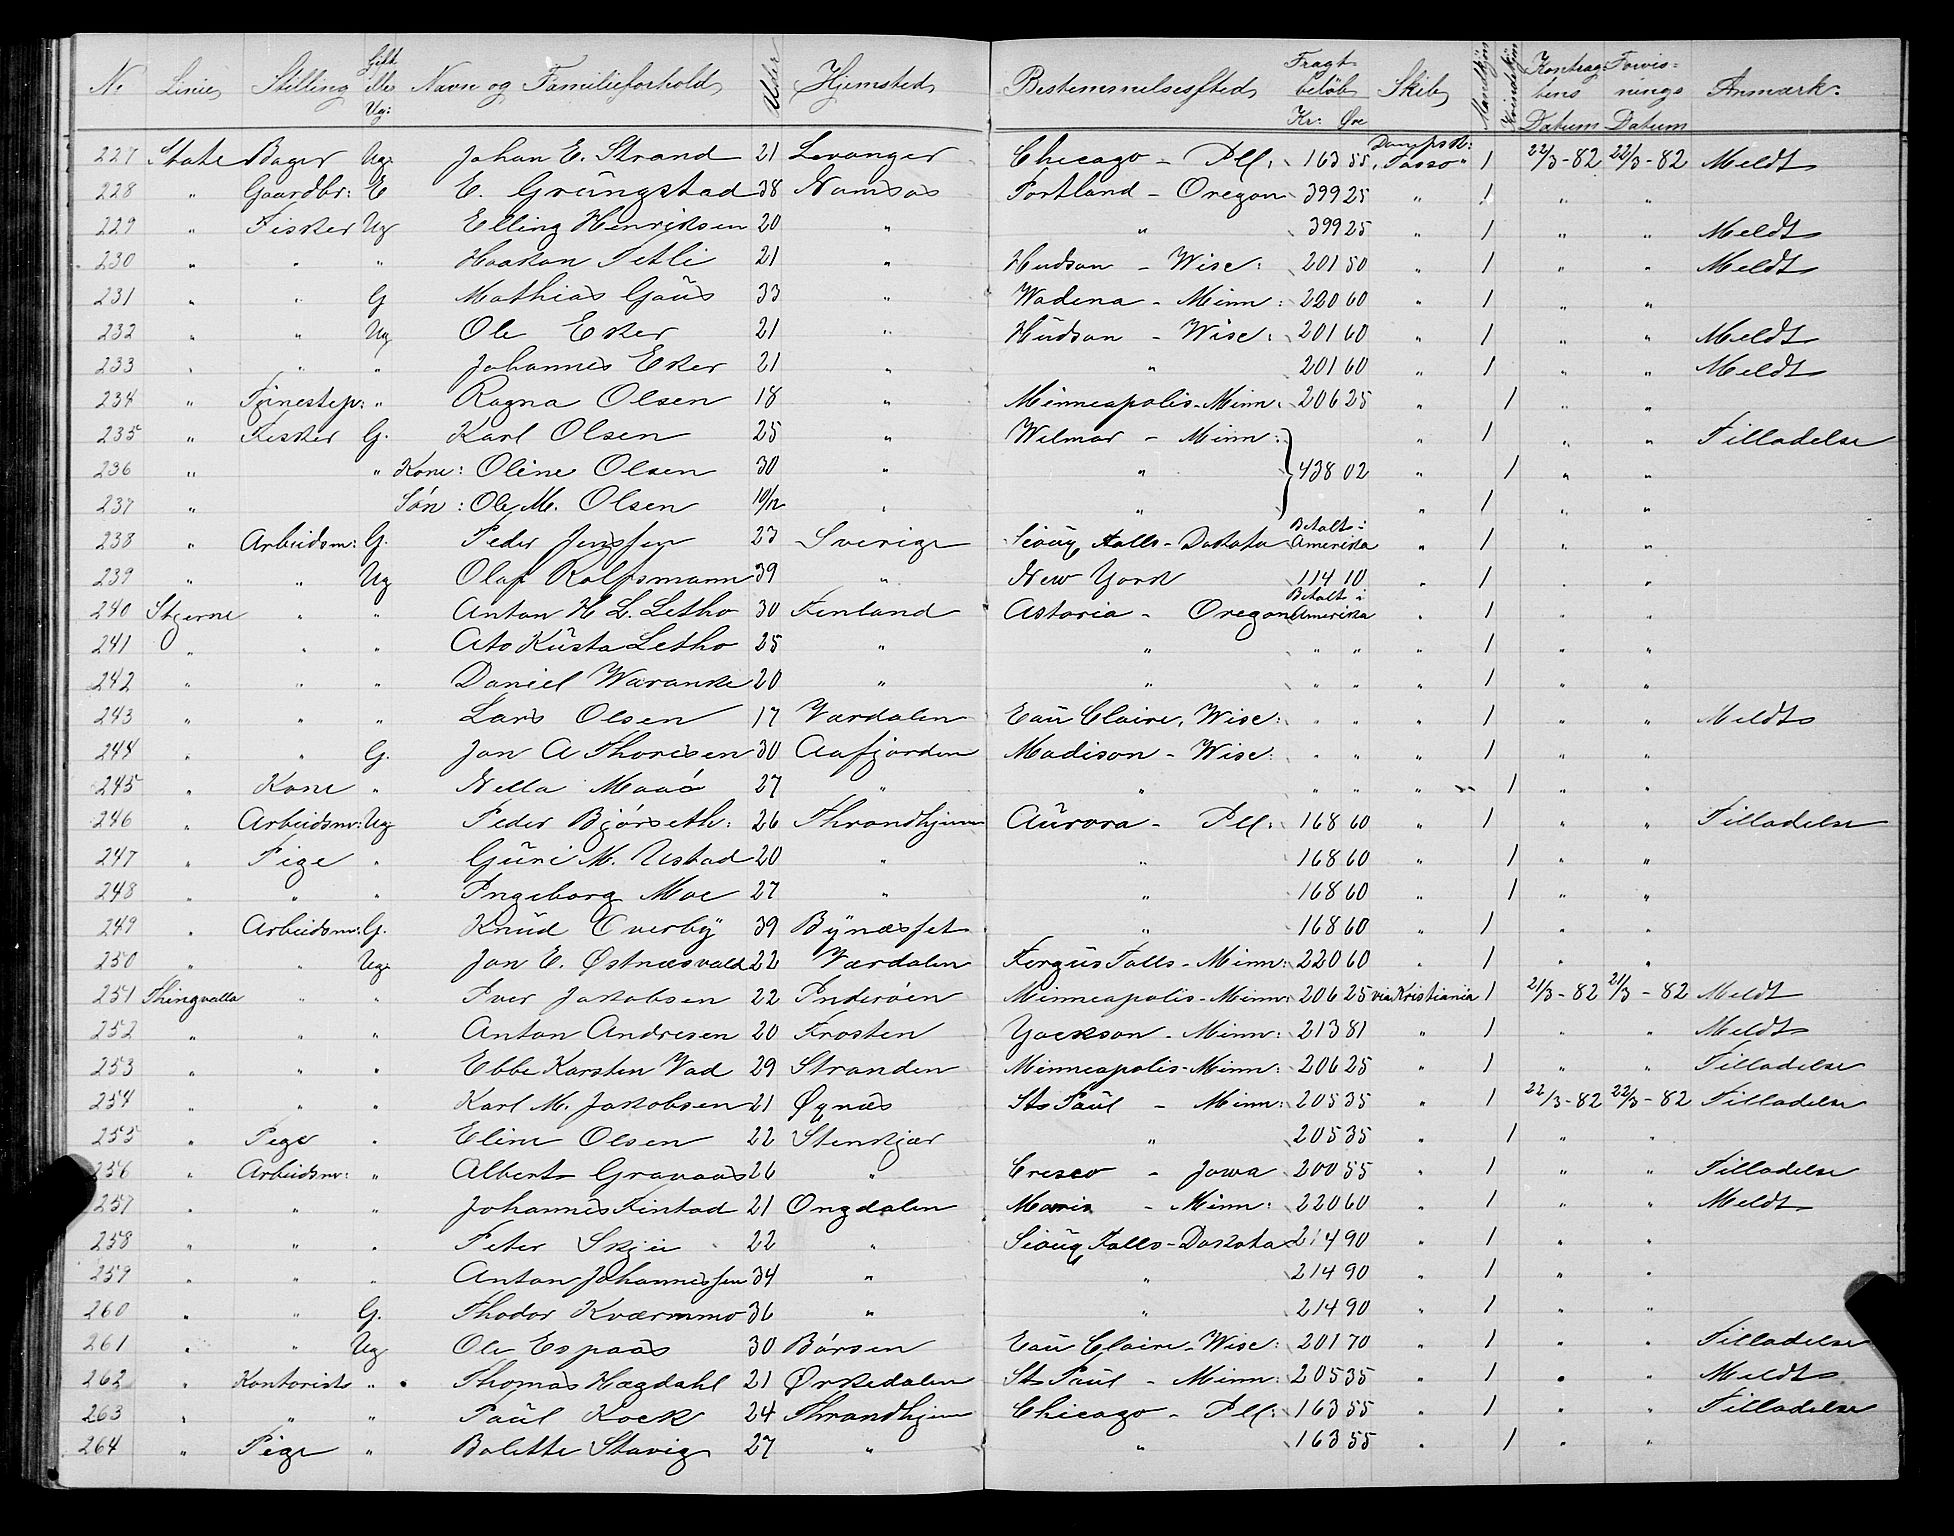 No Linie Stilling Gift eller Ug: Navn og Familieforhold Alder Hjemsted Bestemmelsessted Fragtbeløb Kr: Øre Skib Mandkjøn Kvindekjøn Kontraktens Datum Forvisnings Datum Anmærk:
227 State Bager Ug. Johan E. Strand 21 Levanger Chicago - Ill. 163 55 Dampsk: "Tasso" 1 22/3-82 22/3-82 Meldt
228 " Gaardbr: E E. Grüngstad 38 Namsos Portland - Oregon 399 25 " 1 " "
229 " Fisker Ug Elling Henriksen 20 " " 399 25 " 1 " " Meldt
230 " " " Haakon Tetli 21 " Hudson - Wisc: 201 50 " 1 " " Meldt
231 " " G Mathias Gaüs 33 " Wadena - Minn: 220 60 " 1 " "
232 " " Ug Ole Esker 21 " Hudson - Wisc: 201 60 " 1 " " Meldt
233 " " " Johannes Esker 21 " " 201 60 " 1 " " Meldt
234 " Tjenestep: " Ragna Olsen 18 " Minneapolis - Minn: 206 25 " 1 " "
235 " Fisker G. Karl Olsen 25 " Wilmar - Minn: " 1 " " Tilladelse
236 " " Kone: Oline Olsen 30 " " 438 02 " 1 " "
237 " Søn: Ole M. Olsen 10/12 " " " 1 " "
238 " Arbeidsm: G. Peder Jenssen 23 Sverige Sioux Falls - Dakota Betalt i Amerika " 1 " "
239 " " Ug Olaf Rolfsmann 39 " New York 114 10 " 1 " "
240 Stjerne " " Anton H L. Letho 30 Finland Astoria - Oregon Betalt i Amerika " 1 " "
241 " " " Ato Küsta Letho 25 " " " " " 1 " "
242 " " " Daniel Waranke 20 " " " " " 1 " "
243 " " " Lars Olsen 17 Værdalen Eau Claire, Wisc: " " " 1 " " Meldt
244 " " G. Jon A Thoresen 30 Aafjorden Madison - Wisc: " " " 1 " "
245 " Kone " Nella Maaø 27 " " " " " 1 " "
246 " Arbeidsm: Ug Peder Bjørseth: 26 Throndhjem Aurora - Ill: 168 60 " 1 " " Tilladelse
247 " Pige " Guri M. Ustad 20 " " 168 60 " 1 " "
248 " " " Ingeborg Moe 27 " " 168 60 " 1 " "
249 " Arbeidsm: G. Knud Overby 39 Bynæsset " 168 60 " 1 " "
250 " " Ug. Jon E. Østnæsvald 22 Værdalen Fergus Falls - Minn: 220 60 " 1 " "
251 Thingvalla " " Iver Jakobsen 22 Inderøen Minneapolis - Minn: 206 25 via Kristiania 1 21/3-82 21/3-82 Meldt
252 " " " Anton Andresen 20 Frosten Yackson - Minn: 213 81 " 1 " " Meldt
253 " " " Ebbe Karsten Vad 29 Stranden Minneapolis - Minn: 206 25 " 1 " " Tilladelse
254 " " " Karl M. Jakobsen 21 Øynæs St Paul - Minn: 205 35 " 1 22/3-82 22/3-82 Tilladelse
255 " Pige " Eline Olsen 22 Stenkjær " 205 35 " 1 " "
256 " Arbeidsm: " Albert Gravaas 26 " Cresco - Jowa 200 55 " 1 " " Tilladelse
257 " " " Johannes Fintad 21 Ongdalen Morris - Minn: 220 60 " 1 " " Meldt
258 " " " Peter Skjei 22 " Sioux Falls - Dakota 214 90 " 1 " "
259 " " " Anton Johannessen 34 " " 214 90 " 1 " "
260 " " G. Thodor Kværmmo 36 " " 214 90 " 1 " "
261 " " Ug Ole Espaas 30 Børsen Eau Claire - Wisc: 201 70 " 1 " " Tilladelse
262 " Kontorist " Thomas Hægdahl 21 Ørkedalen St Paul - Minn: 205 35 " 1 " " Meldt
263 " " " Paul Kock 24 Throndhjem Chicago - Ill: 163 55 " 1 " " Tilladelse
264 " Pige " Bolette Stavig 27 " " 163 55 " 1 " "